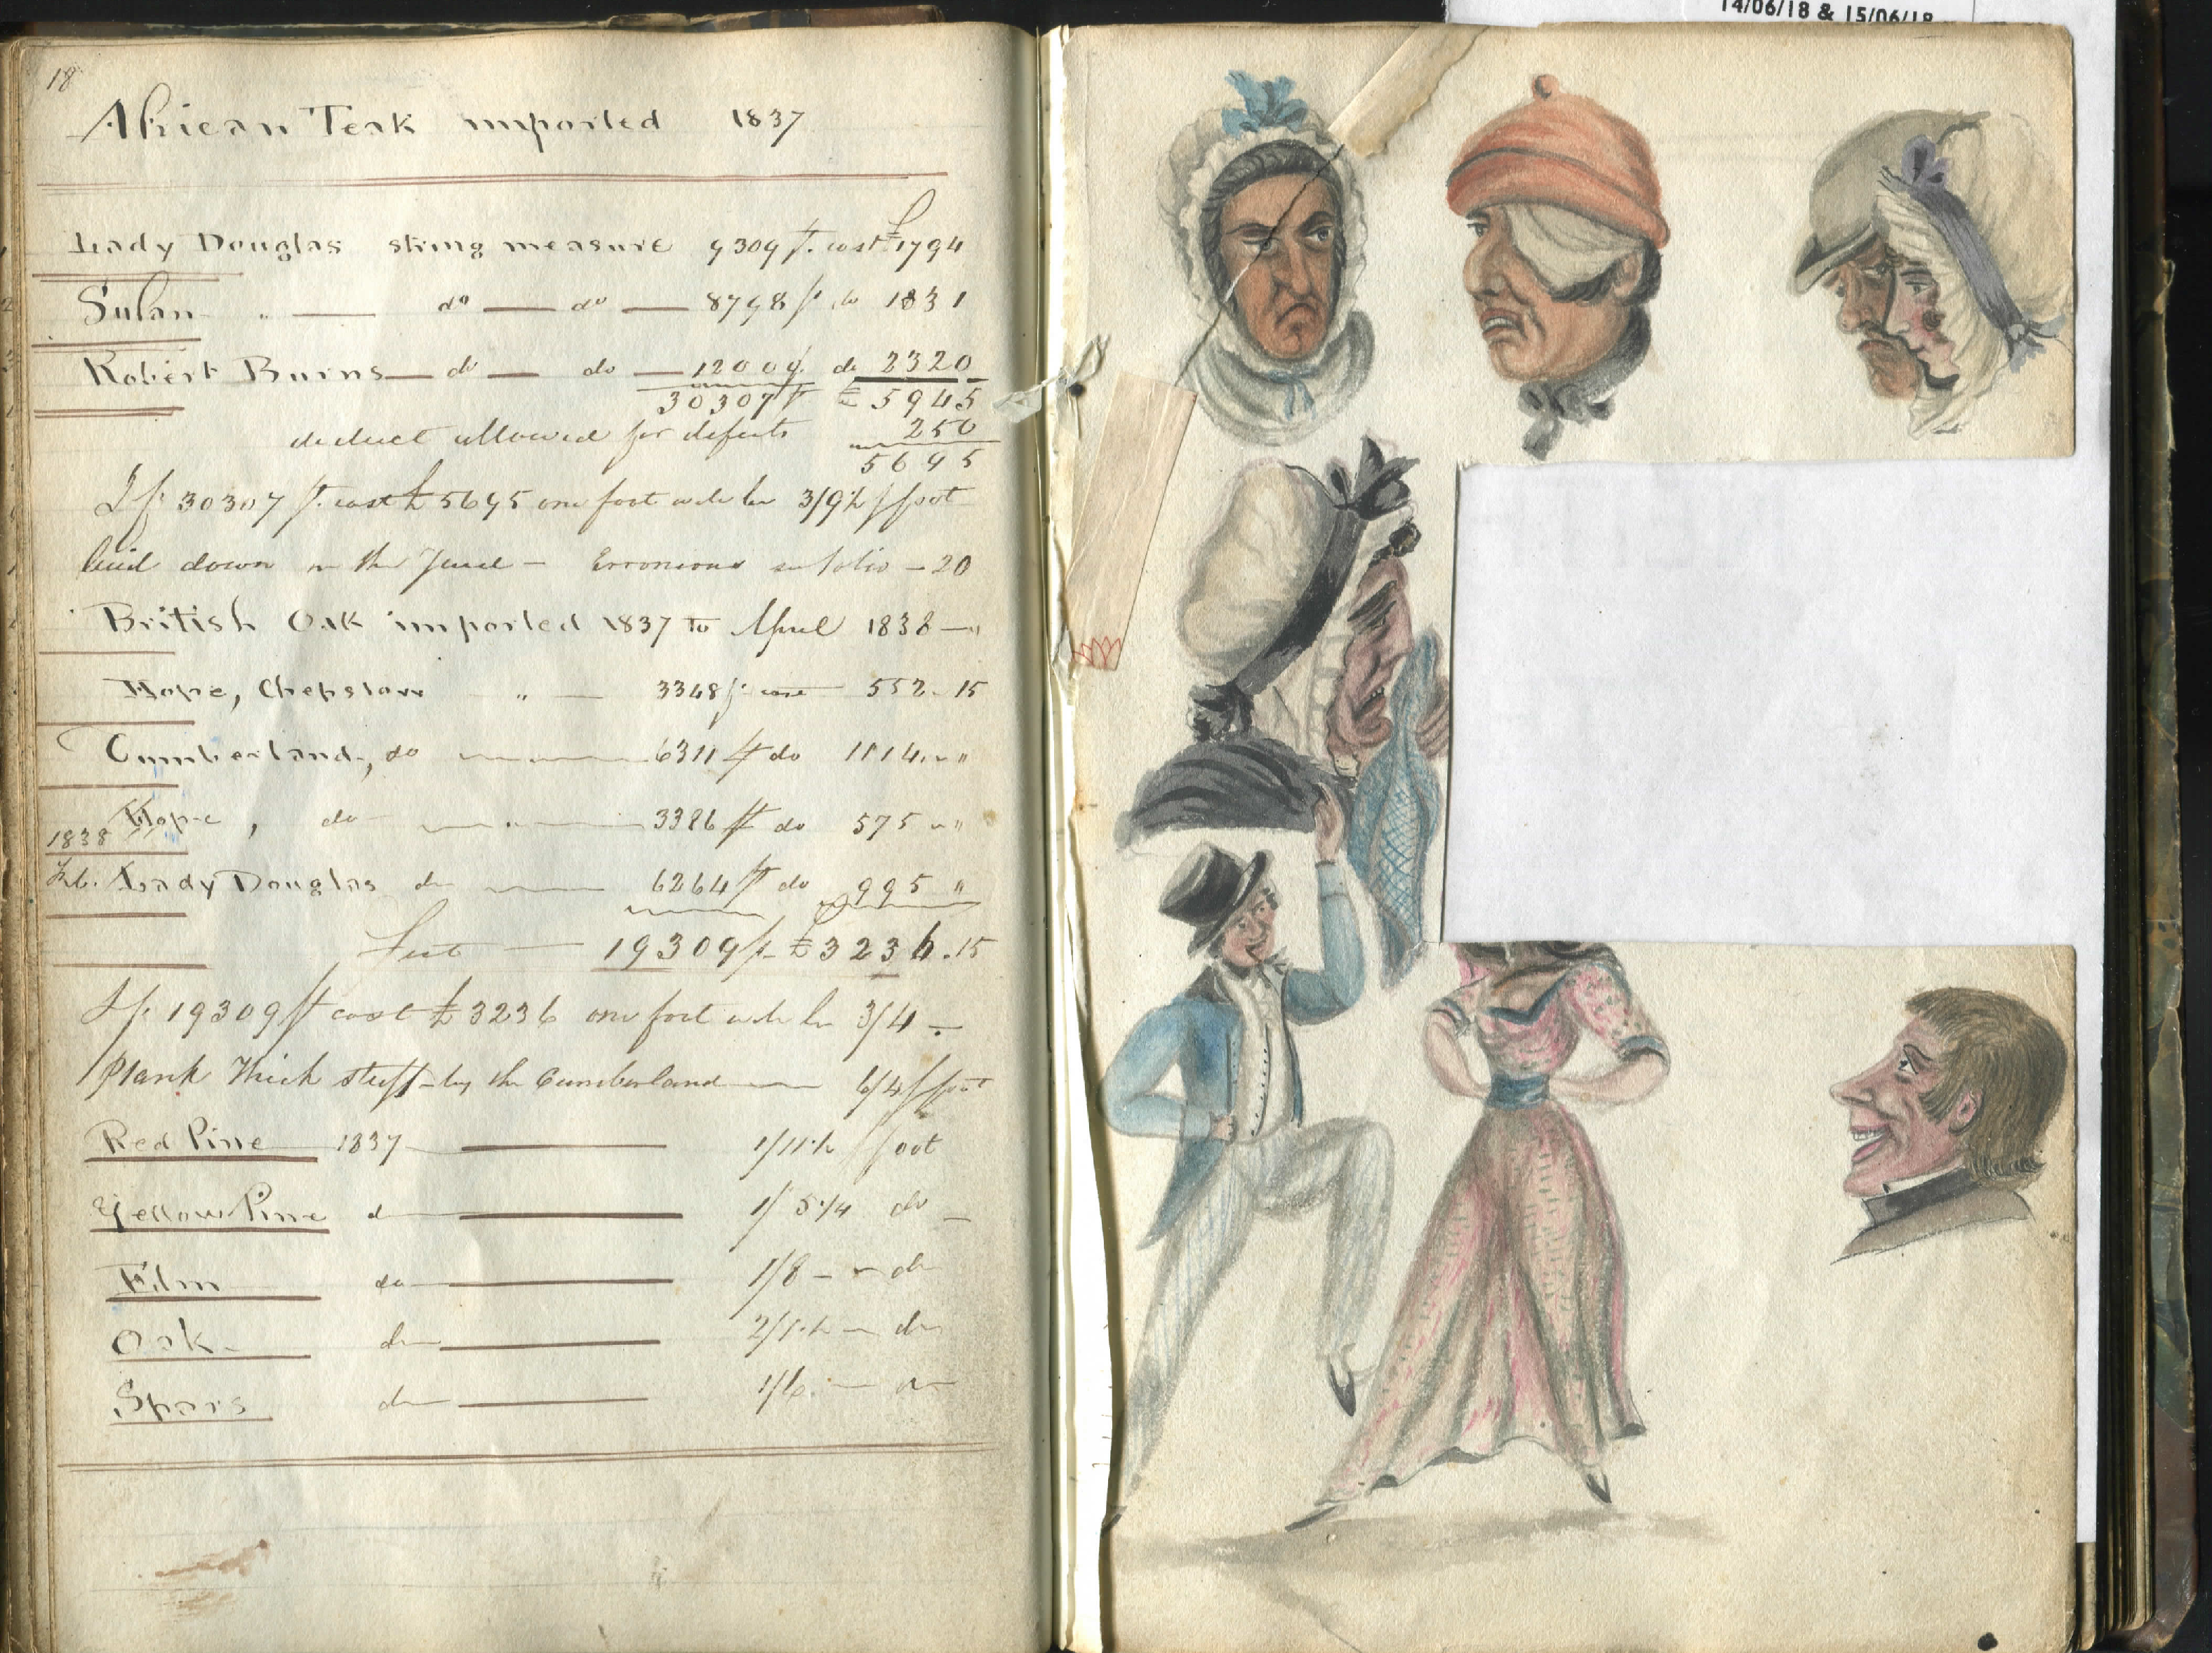 18
African Teak imported 1837
Lady Douglas string measure 9309 ft. cost £1794
Susan " — do — do — 8998 ft do 1831
Robert Burns — do — do — 12000 ft. do 2320
30307 ft £ 5945
deduct allowed for defects 250
5695
If 30307 ft. cost £5695 one foot will be 3/9½ foot
laid down in the Yard – Erronious see folio – 20
British Oak imported 1837 to April 1838 — "
Hope, Chepstow " — 3348 ft cost 552 . 15
Cumberland, do 6311 ft do 1114 . "
Hope, do 3386 ft do 575 "
1838
Feb. Lady Douglas do 6264 ft do 995 "
Feet — 19309 ft £3236 . 15
If 19309 ft cost £3236 one foot will be 3/4 –
Plank Thick stuff – by the Cumberland — 6/4 foot
Red Pine 1837 1/11½ foot
Yellow Pine do 1/5¼ do
Elm do 1/8 – do
Oak do 2/1½ – do
Spars do 1/6 –
14/06/18 & 15/06/18